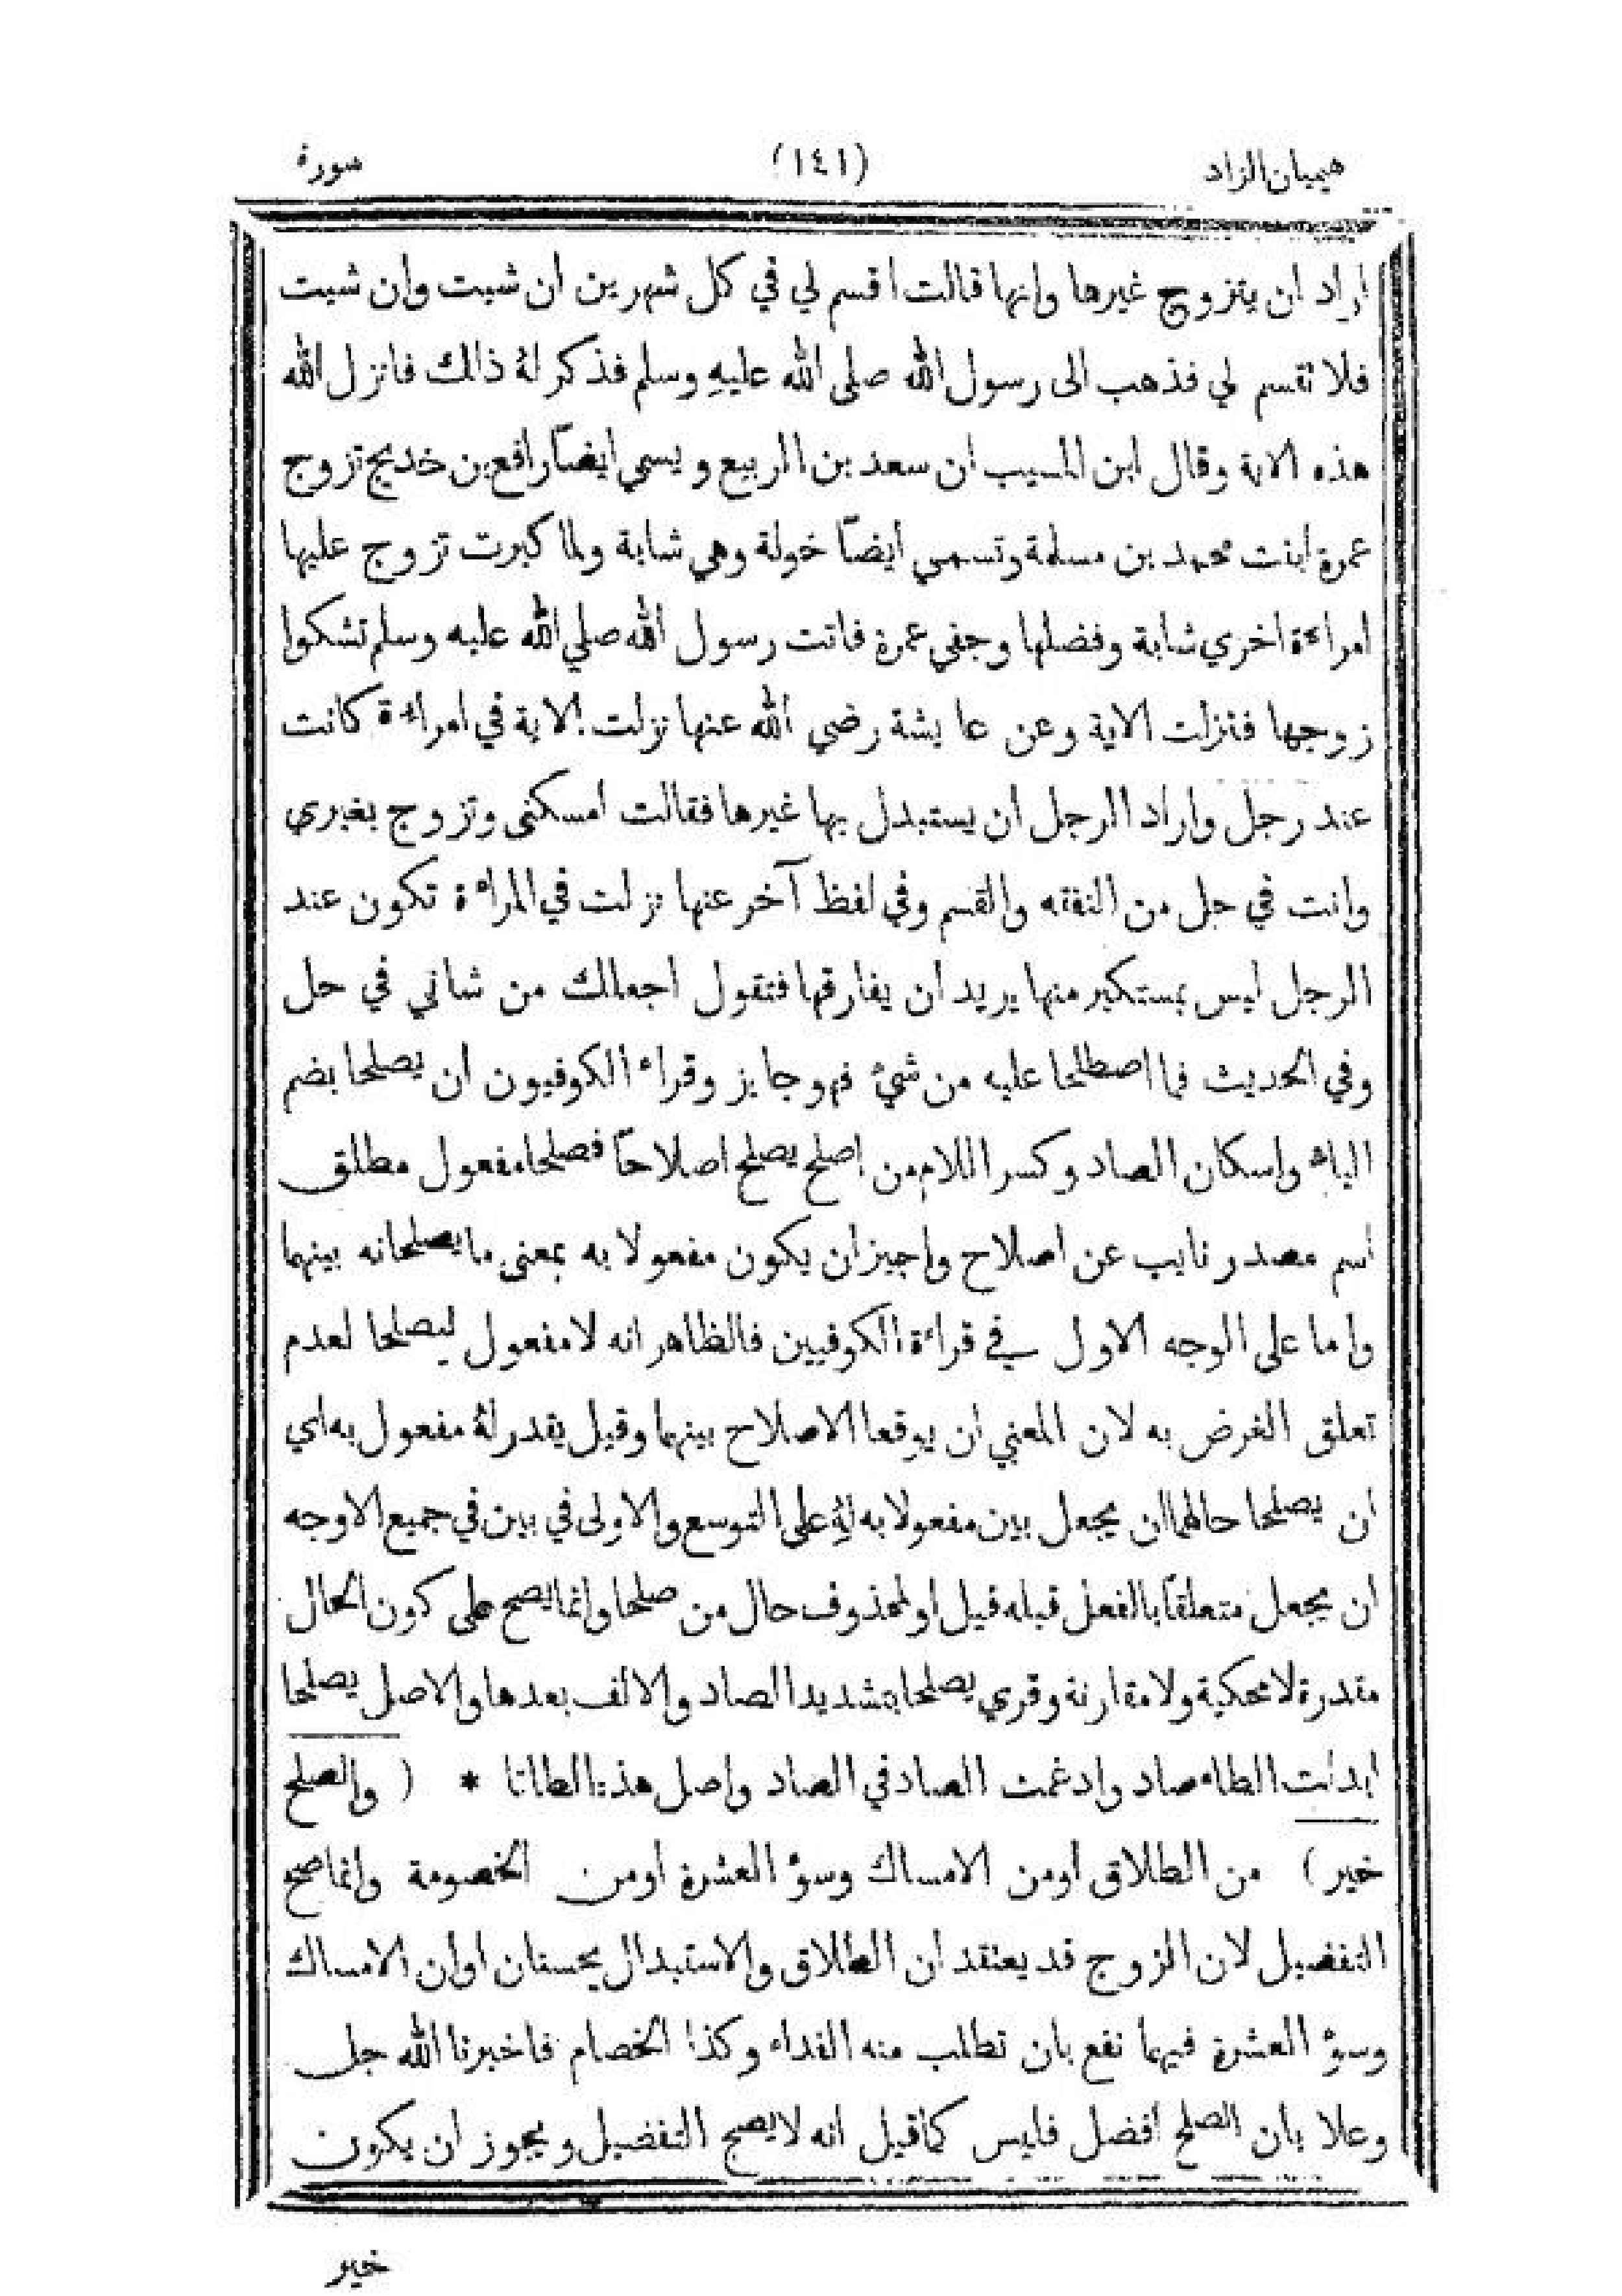 هيميان الزاد (١٤١) سورة
اراد ان يتزوج غيرها وانها قالت اقسم لي في كل شهرين ان شيت وان شيت
فلا تقسم لي فذهب الى رسول الله صلى الله عليهِ وسلم فذكر لهُ ذالك فانزل الله
هذه الاية وقال ابن المسيب ان سعد بن الربيع ويسمي ايضاً رافع بن خديج تزوج
عمرة ابنت محمد بن مسلمة وتسمي ايضاً خولة وهي شابة ولما كبرت تزوج عليها
امراءة اخري شابة وفضلها وجفي عمرة فاتت رسول الله صلي الله عليه وسلم تشكوا
زوجها فنزلت الاية وعن عايشة رضي الله عنها نزلت الاية في امراءة كانت
عند رجل واراد الرجل ان يستبدل بها غيرها فقالت امسكنى وتزوج بغيري
وانت في حل من النفقه والقسم وفي لفظ آخر عنها نزلت في المراءة تكون عند
الرجل ليس بمستكبر منها يريد ان يفارقها فتقول اجعالك من شاني في حل
وفي الحديث فما اصطلحا عليه من شيئ فهو جايز وقراء الكوفيون ان يصلحا بضم
الياء واسكان الصاد وكسر اللام من اصلح يصلح اصلاحاً فصلحا مفعول مطلق
اسم مصدر نايب عن اصلاح واجيز ان يكون مفعولا به بمعنى ما يصلحانه بينهما
واما على الوجه الاول في قراءة الكوفيين فالظاهر انه لا مفعول ليصلحا لعدم
تعلق الغرض به لان المعني ان يوقعا الاصلاح بينهما وقيل يقدر لهُ مفعول به اي
ان يصلحا حالهما ان يجعل بين مفعولا به لهُ على التوسع والاولى في بين في جميع الاوجه
ان يجعل متعلقاً بالفعل قبله قيل او لمحذوف حال من صلحا وانما يصح على كون الحال
مقدرة لا محكية ولا مقارنة وقري يصلحا بتشديد الصاد والالف بعدها والاصل يصلحا
ابدلت الطاء صاد وادغمت الصاد في الصاد واصل هذه الطا تا * (والصلح
خير) من الطلاق او من الامساك وسوء العشرة او من الخصومة وانما صح
التفضيل لان الزوج قد يعتقد ان الطلاق والاستبدال يحسنان او ان الامساك
وسوء العشرة فيهما نفع بان تطلب منه الفداء وكذا الخصام فاخبرنا الله جل
وعلا بأن الصلح افضل فليس كما قيل انه لا يصح التفضيل ويجوز ان يكون
خير